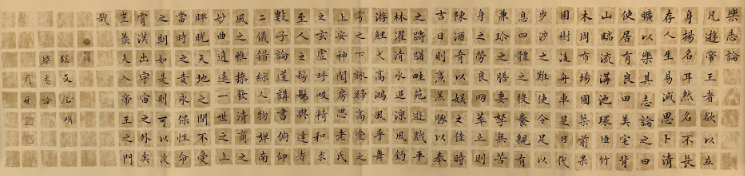 樂志論
凡遊帝王者欲以立
身揚名耳然名不長
存人生易滅思卜清
曠以樂其志論之曰
使居有良田美宅背
山臨流溝池環匝竹
木周布場圃築前果
園樹後舟車足以代
步涉之難使令足以
息四體之役養親有
兼珍之膳妻孥無苦
身之勞良朋萃止則
陳酒肴以娛之嘉時
吉日則烹羔豚以奉
之躊躇畦苑遊戲平
林濯清水追涼風釣
游鯉弋高鴻風乎舞
雩之下詠歸高堂之
上安神閨房思老氏
之玄虛呼吸精和求
至人之彷彿與達者
數子論道講書俯仰
二儀錯綜人物彈南
風之雅操發清商之
妙曲逍遙一世之上
睥睨天地之間不受
當時之責永保性命
之期如是則可以凌
霄漢出宇宙之外矣
豈羨夫入帝王之門
哉